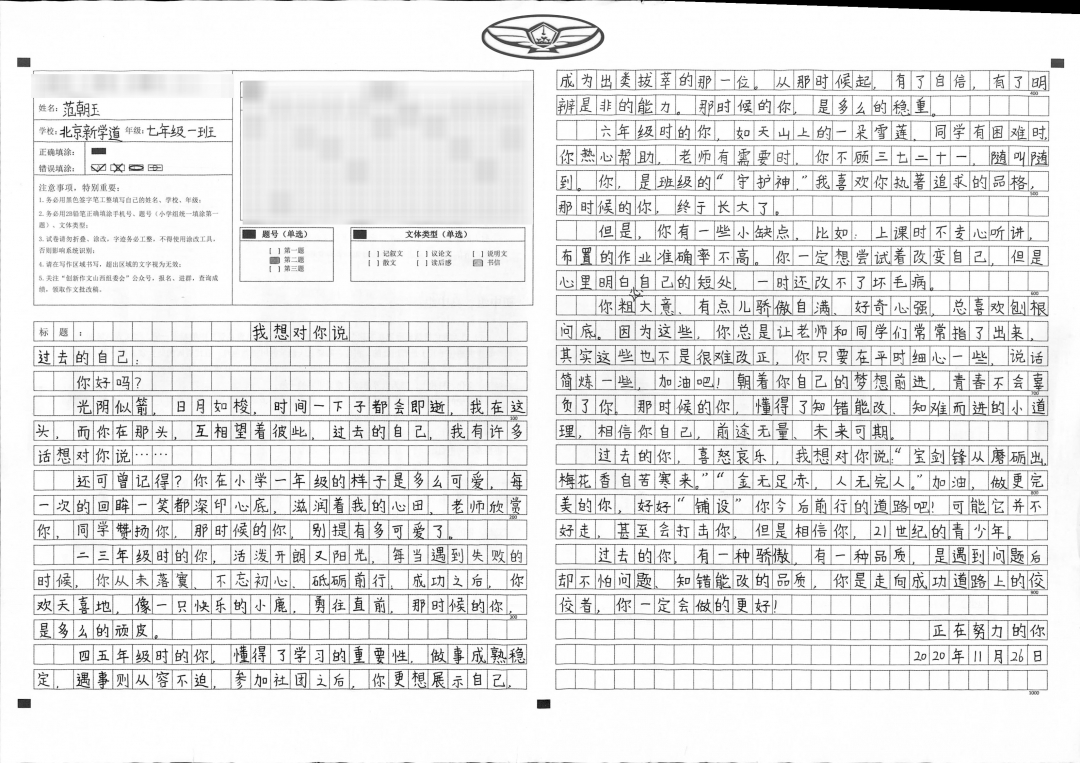 姓名：范朝玉
学校：北京新学道 年级：七年级一班
正确填涂：
错误填涂：
注意事项，特别重要：
1.务必用黑色签字笔工整填写自己的姓名、学校、年级；
2.务必用2B铅笔正确填涂手机号、题号（小学组统一填涂第一
题）、文体类型；
3.试卷请勿折叠、涂改，字迹务必工整，不得使用涂改工具，
否则影响系统识别；
4.请在写作区域书写，超出区域的文字视为无效；
5.关注“创新作文山西组委会”公众号，报名、进群、查询成
绩、领取作文批改稿。
题号（单选）
[ ] 第一题
第二题
[ ] 第三题
文体类型（单选）
[ ] 记叙文 [ ] 议论文 [ ] 说明文
[ ] 散文 [ ] 读后感 书信
标题： 我想对你说
过去的自己：
你好吗？
光阴似箭，日月如梭，时间一下子都会即逝，我在这
100
头，而你在那头，互相望着彼此，过去的自己，我有许多
话想对你说……
还可曾记得？你在小学一年级的样子是多么可爱，每
一次的回眸一笑都深印心底，滋润着我的心田，老师欣常
200
你，同学赞扬你，那时候的你，别提有多可爱了。
二三年级时的你，活泼开朗又阳光，每当遇到失败的
时候，你从未落寞、不忘初心、砥砺前行、成功之后，你
欢天喜地，像一只快乐的小鹿，勇往直前，那时候的你，
300
是多么的顽皮。
四五年级时的你，懂得了学习的重要性，做事成熟稳
定，遇事则从容不迫，参加社团之后，你更想展示自己，
成为出类拔萃的那一位。从那时候起，有了自信，有了明
400
辨是非的能力。那时候的你，是多么的稳重。
六年级时的你，如天山上的一朵雪莲，同学有困难时，
你热心帮助，老师有需要时，你不顾三七二十一，随叫随
到。你，是班级的“守护神”我喜欢你执著追求的品格，
500
那时候的你，终于长大了。
但是，你有一些小缺点，比如：上课时不专心听讲，
布置的作业准确率不高。你一定想尝试着改变自己，但是
心里明白自己的短处，一时还改不了坏毛病。
600
你粗大意、有点儿骄傲自满、好奇心强，总喜欢刨根
问底。因为这些，你总是让老师和同学们常常指了出来，
其实这些也不是很难改正，你只要在平时细心一些，说话
简炼一些，加油吧！朝着你自己的梦想前进，青春不会辜
700
负了你。那时候的你，懂得了知错能改、知难而进的小道
理，相信你自己，前途无量、未来可期。
过去的你，喜怒哀乐，我想对你说：“宝剑锋从磨砺出，
梅花香自苦寒来。”“金无足赤，人无完人。”加油，做更完
800
美的你，好好“铺设”你今后前行的道路吧！可能它并不
好走，甚至会打击你，但是相信你，21世纪的青少年。
过去的你，有一种骄傲，有一种品质，是遇到问题后
却不怕问题、知错能改的品质，你是走向成功道路上的佼
900
佼者，你一定会做的更好！
正在努力的你
2020年11月26日
1000